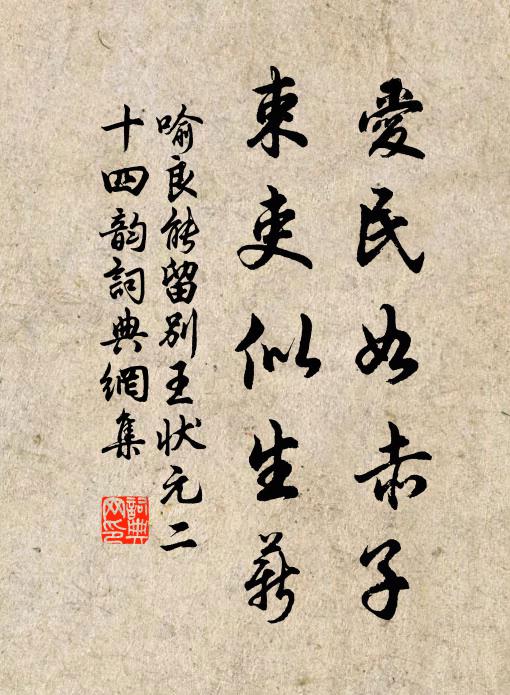 愛民如赤子
束吏似生薪
喻良能留别王狀元二
十四韵詞典網集
詞典
网印